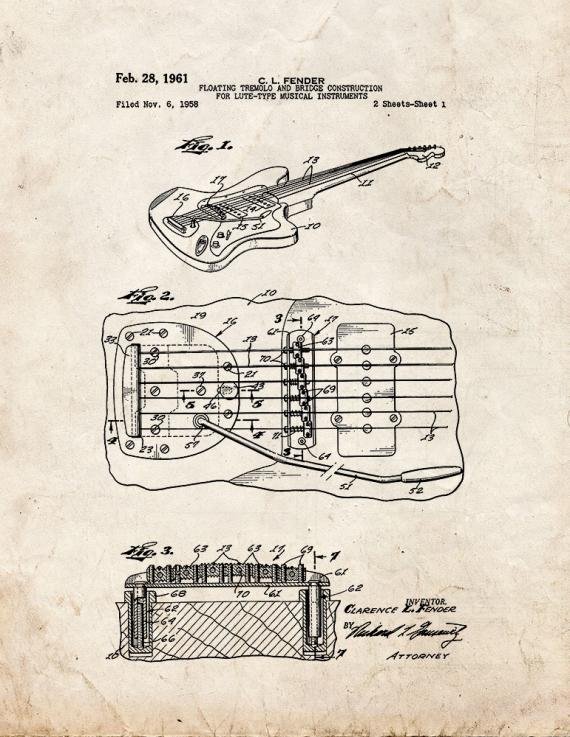 Feb. 28, 1961
C. L. FENDER
FLOATING TREMOLO AND BRIDGE CONSTRUCTION
FOR LUTE-TYPE MUSICAL INSTRUMENTS
Filed Nov. 6, 1958
2 Sheets-Sheet 1
Fig. 1.
13
12
11
17
16
14
15 51
10
Fig. 2.
10
19
16
3
64
17
15
33
21
61
63
18
30
70
21
37
43
69
46
5
5
30
4
4
13
23
57
3
64
51
52
Fig. 3.
63
13
63
17
69
7
61
68
70
61
62
62
64
66
10
7
INVENTOR.
CLARENCE L. FENDER
BY
ATTORNEY